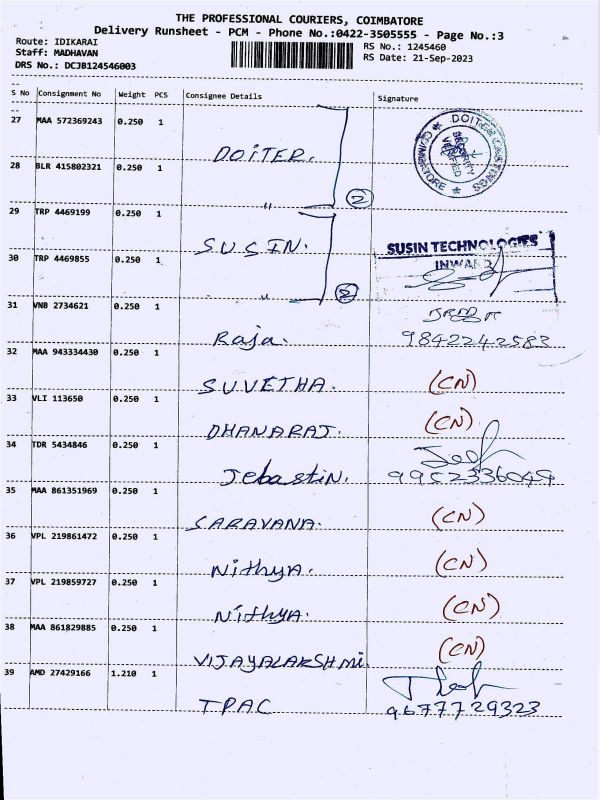 THE PROFESSIONAL COURIERS, COIMBATORE
Delivery Runsheet - PCM - Phone No.:0422-3505555 - Page No.:3
Route: IDIKARAI
Staff: MADHAVAN
DRS No.: DCJB124546003
RS No.: 1245460
RS Date: 21-Sep-2023
S No Consignment No Weight PCS Consignee Details Signature
27 MAA 572369243 0.250 1 DOITER.
DOITER CASTINGS COIMBATORE SECURITY VERIFIED
28 BLR 415802321 0.250 1 " 2
29 TRP 4469199 0.250 1 SUSIN.
SUSIN TECHNOLOGIES
INWARD
30 TRP 4469855 0.250 1 " 2
31 VNB 2734621 0.250 1 Raja. 9842242583
32 MAA 943334430 0.250 1 SUVETHA. (CN)
33 VLI 113650 0.250 1 DHANARAJ. (CN)
34 TDR 5434846 0.250 1 Jebastin. 9952336049
35 MAA 861351969 0.250 1 SARAVANA. (CN)
36 VPL 219861472 0.250 1 Nithya. (CN)
37 VPL 219859727 0.250 1 Nithya. (CN)
38 MAA 861829885 0.250 1 VIJAYALAKSHMI. (CN)
39 AMD 27429166 1.210 1 TPAC 9677729323